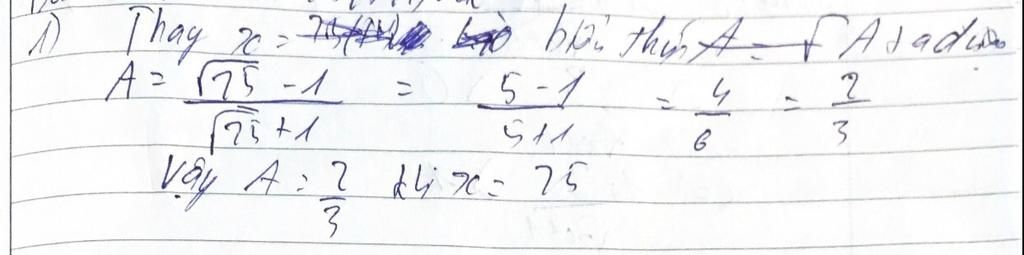 1) Thay x = 25 (TM) vào biểu thức A ta được
A = √25 - 1 / √25 + 1 = 5 - 1 / 5 + 1 = 4/6 = 2/3
Vậy A = 2/3 khi x = 25